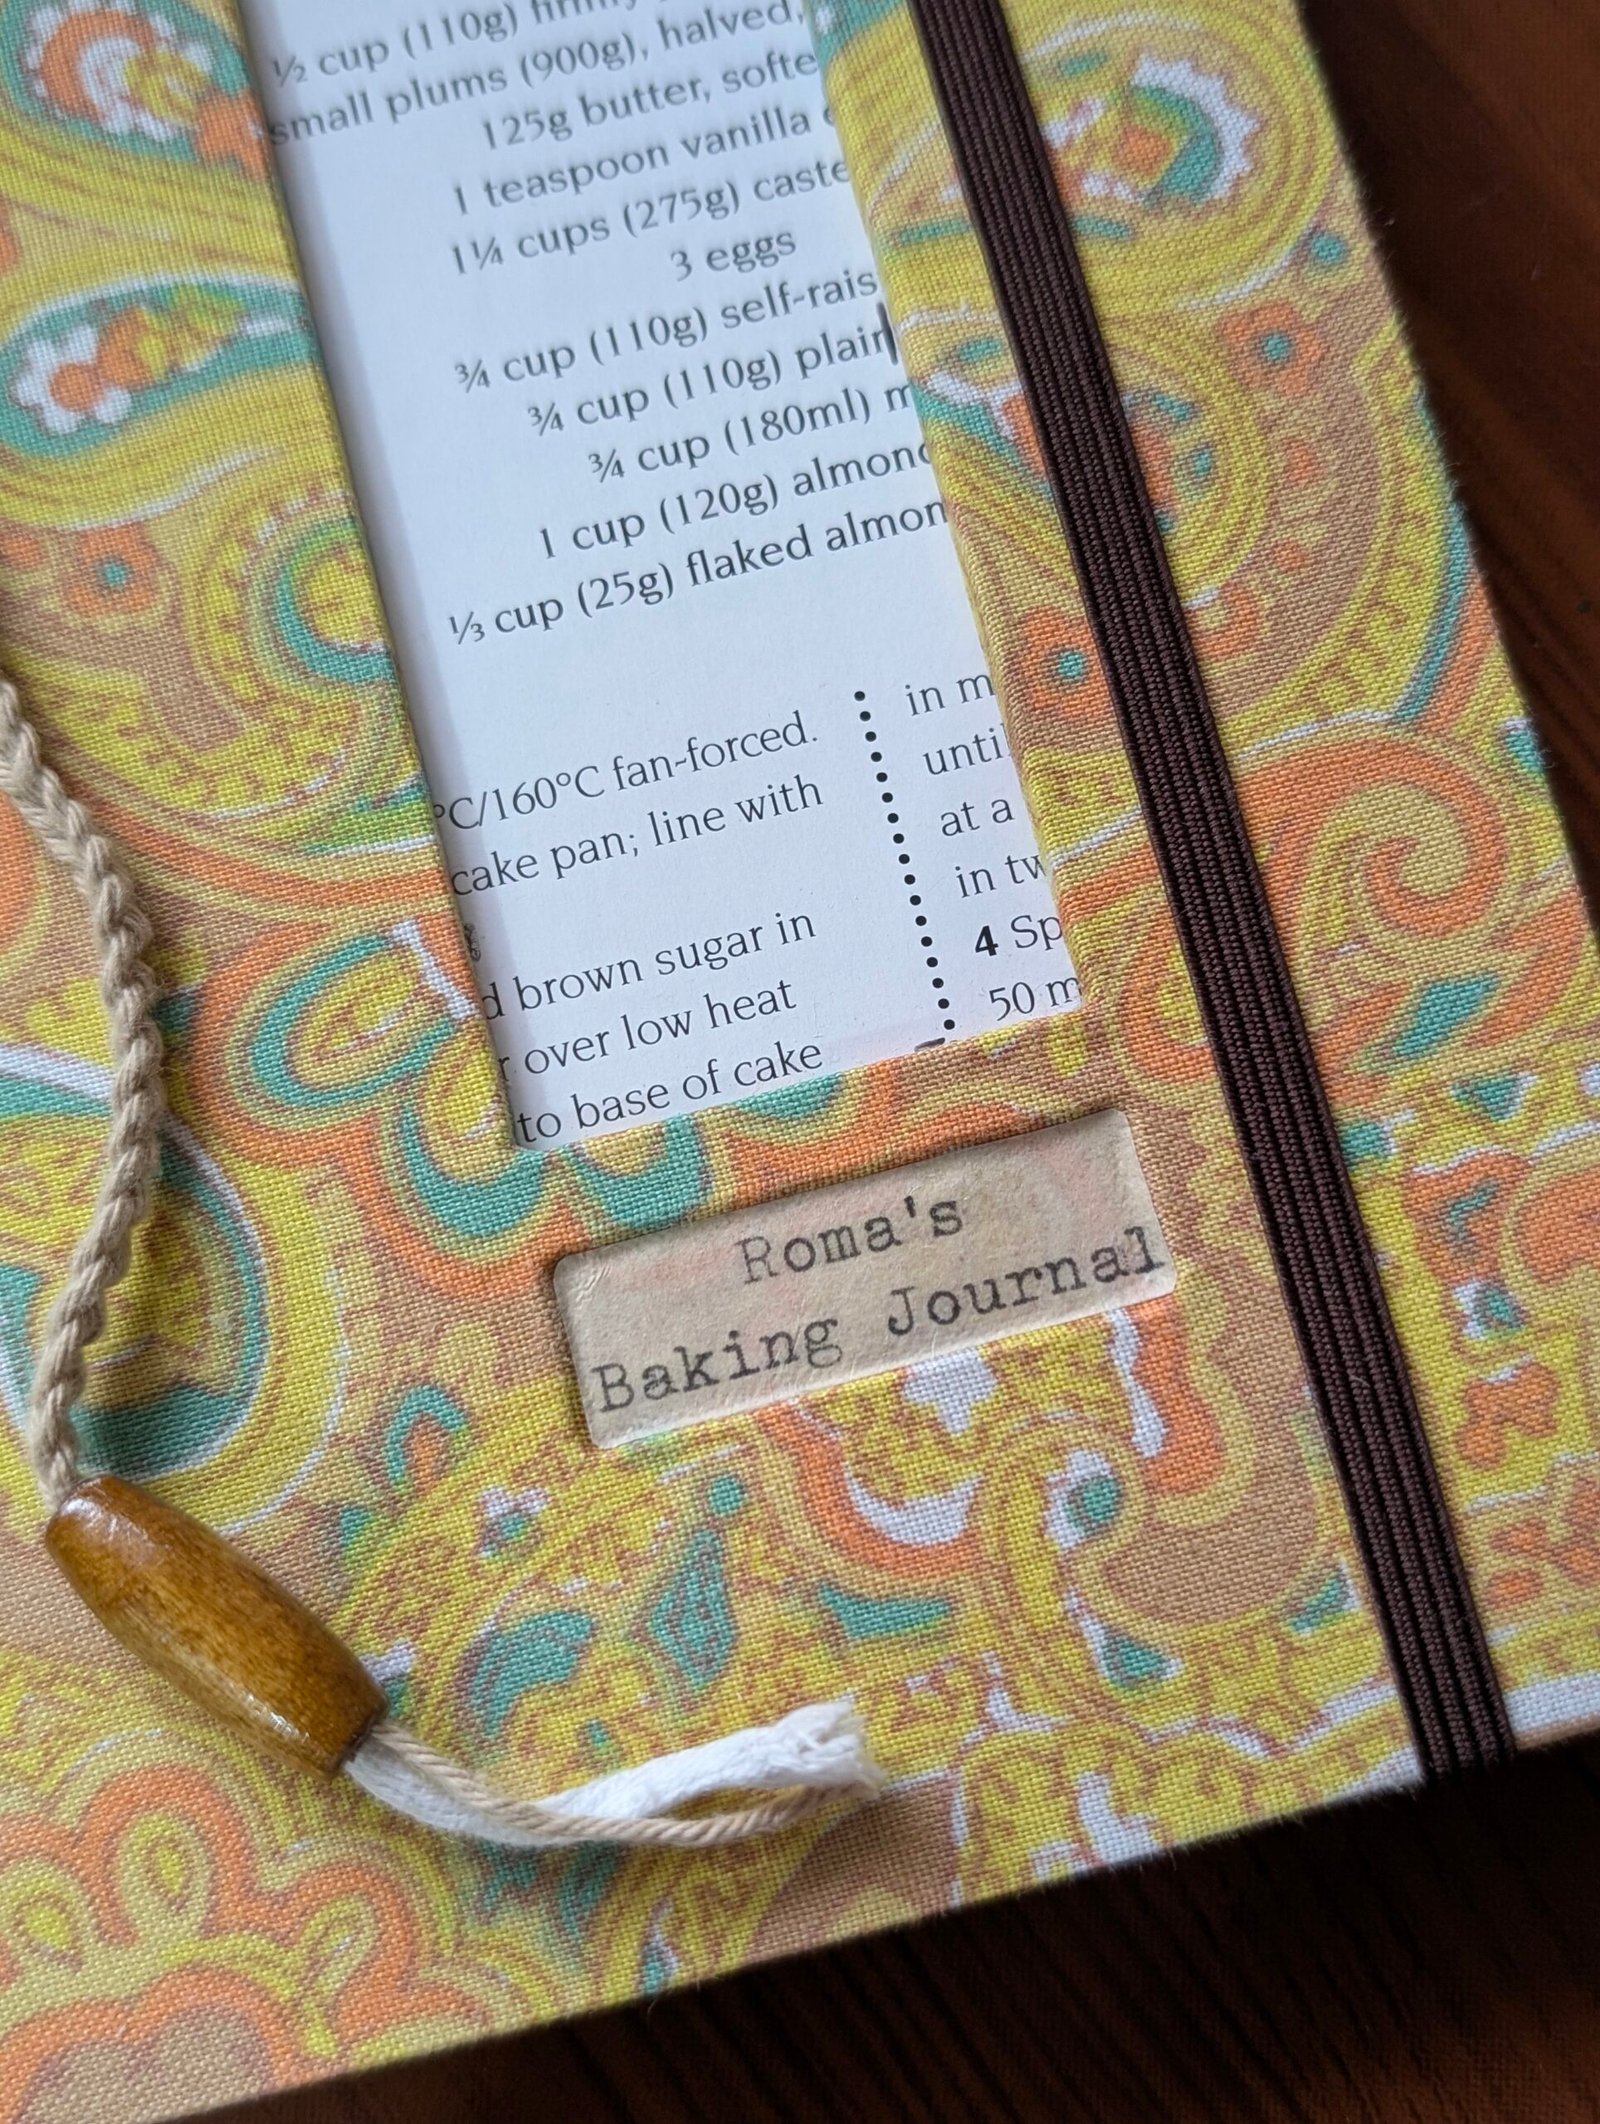 ½ cup (110g) firmly
small plums (900g), halved,
125g butter, softe
1 teaspoon vanilla
1¼ cups (275g) caste
3 eggs
¾ cup (110g) self-rais
¾ cup (110g) plain
¾ cup (180ml) m
1 cup (120g) almond
⅓ cup (25g) flaked almon
°C/160°C fan-forced.
cake pan; line with
d brown sugar in
r over low heat
to base of cake
in m
until
at a
in tw
4 Sp
50 m
Roma's
Baking Journal